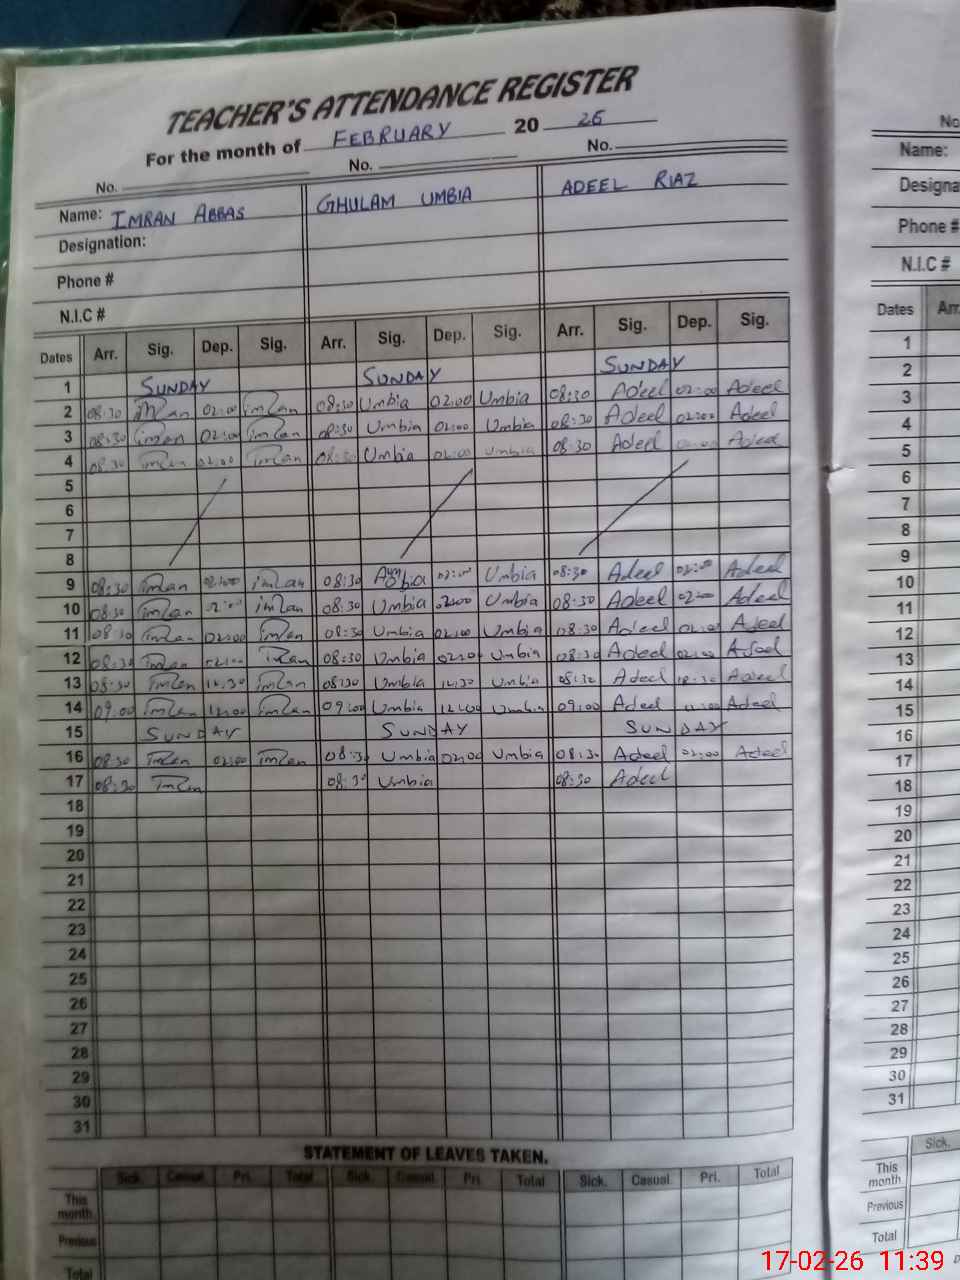 TEACHER'S ATTENDANCE REGISTER
For the month of FEBRUARY 20 26
No. No. No.
Name: IMRAN ABBAS GHULAM UMBIA ADEEL RIAZ
Designation:
Phone #
N.I.C #
Dates Arr. Sig. Dep. Sig. Arr. Sig. Dep. Sig. Arr. Sig. Dep. Sig.
1 SUNDAY SUNDAY SUNDAY
2 08:30 imran 02:00 imran 08:30 Umbia 02:00 Umbia 08:30 Adeel 02:00 Adeel
3 08:30 imran 02:00 imran 08:30 Umbia 02:00 Umbia 08:30 Adeel 02:00 Adeel
4 08:30 imran 02:00 imran 08:30 Umbia 02:00 Umbia 08:30 Adeel 02:00 Adeel
5
6
7
8
9 08:30 imran 02:00 imran 08:30 02:00 Umbia 08:30 Adeel 02:00 Adeel
10 08:30 imran 02:00 imran 08:30 Umbia 02:00 Umbia 08:30 Adeel 02:00 Adeel
11 08:30 imran 02:00 imran 08:30 Umbia 02:00 Umbia 08:30 Adeel 02:00 Adeel
12 08:30 imran 02:00 imran 08:30 Umbia 02:00 Umbia 08:30 Adeel 02:00 Adeel
13 08:30 imran 12:30 imran 08:30 Umbia 12:30 Umbia 08:30 Adeel 12:30 Adeel
14 09:00 imran 12:00 imran 09:00 Umbia 12:00 Umbia 09:00 Adeel Adeel
15 SUNDAY SUNDAY SUNDAY
16 08:30 imran 02:00 imran 08:30 Umbia 02:00 Umbia 08:30 Adeel 02:00 Adeel
17 08:30 imran 08:30 Umbia 08:30 Adeel
18
19
20
21
22
23
24
25
26
27
28
29
30
31
STATEMENT OF LEAVES TAKEN.
Sick. Casual. Pri. Total Sick. Casual. Pri. Total Sick. Casual. Pri. Total
This month
Previous
Total
No
Name:
Designa
Phone #
N.I.C #
Dates Arr.
1
2
3
4
5
6
7
8
9
10
11
12
13
14
15
16
17
18
19
20
21
22
23
24
25
26
27
28
29
30
31
Sick.
This month
Previous
Total
17-02-26 11:39